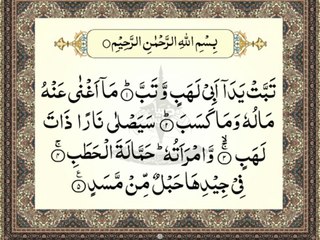 بِسْمِ اللهِ الرَّحْمٰنِ الرَّحِيْمِ
تَبَّتْ يَدَآ اَبِيْ لَهَبٍ وَّتَبَّ ۝١ مَآ اَغْنٰى عَنْهُ
مَالُهٗ وَمَا كَسَبَ ۝٢ سَيَصْلٰى نَارًا ذَاتَ
لَهَبٍ ۝٣ وَّامْرَاَتُهٗ ؕ حَمَّالَةَ الْحَطَبِ ۝٤
فِيْ جِيْدِهَا حَبْلٌ مِّنْ مَّسَدٍ ۝٥